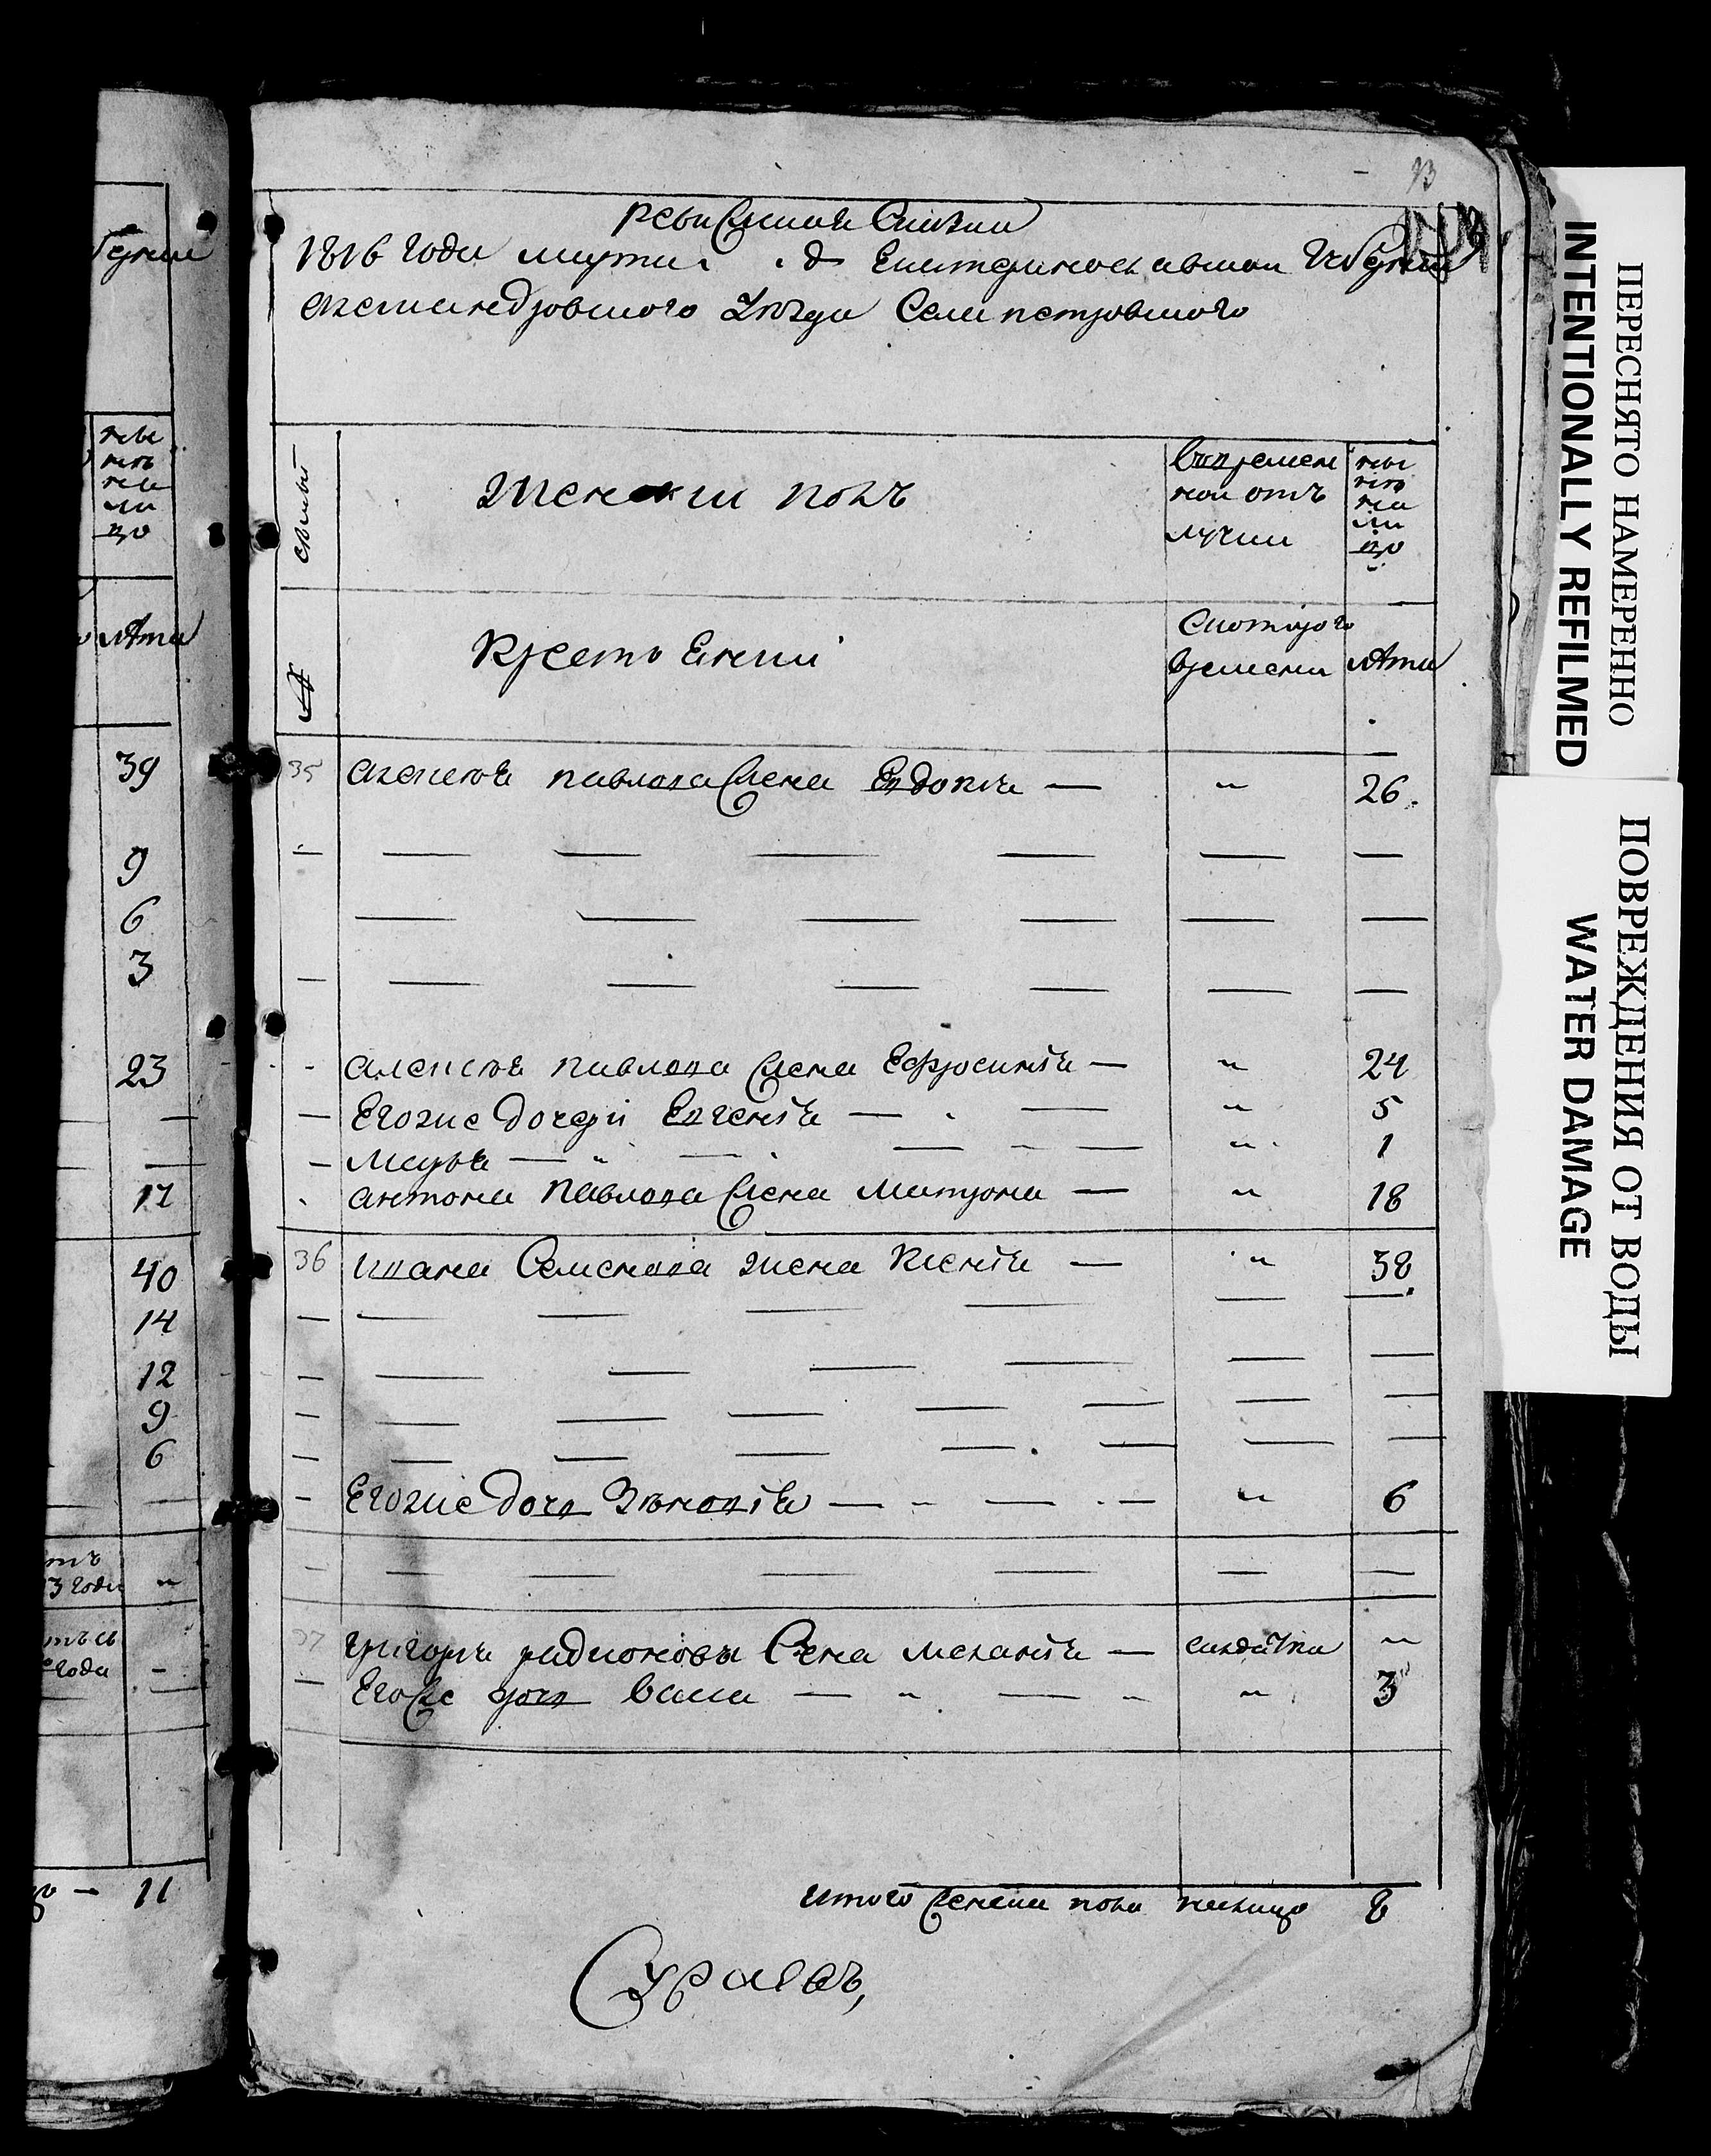 93
Ревизская Сказка
1816 года марта д Екатеринославской Губернии
Александровского Уезда Села петровского
семьи
Женски полъ
Въвремен
ной отъ
лучки
ны
не
на
ли
цо
№
Крестьянки
Скоторого
времени
лета
35 Алексея павлова жена Евдокия — " 26
Алексея павлова жена Ефросиния — " 24
Егоже дочери Евгения — " 5
Марья — " 1
антона Павлова жена Матрона — " 18
36 ивана Семенова жена Ксения — " 38
Егоже дочь Зиновия — " 6
37 григория радионова жена мелания — салдатка "
Егоже дочь Васса — " 3
итого женска пола налицо 8
губернии
ны
не
на
ли
цо
лета
39
9
6
3
23
17
40
14
12
9
6
года "
года -
— 11
ПЕРЕСНЯТО НАМЕРЕННО
INTENTIONALLY REFILMED
ПОВРЕЖДЕНИЯ ОТ ВОДЫ
WATER DAMAGE